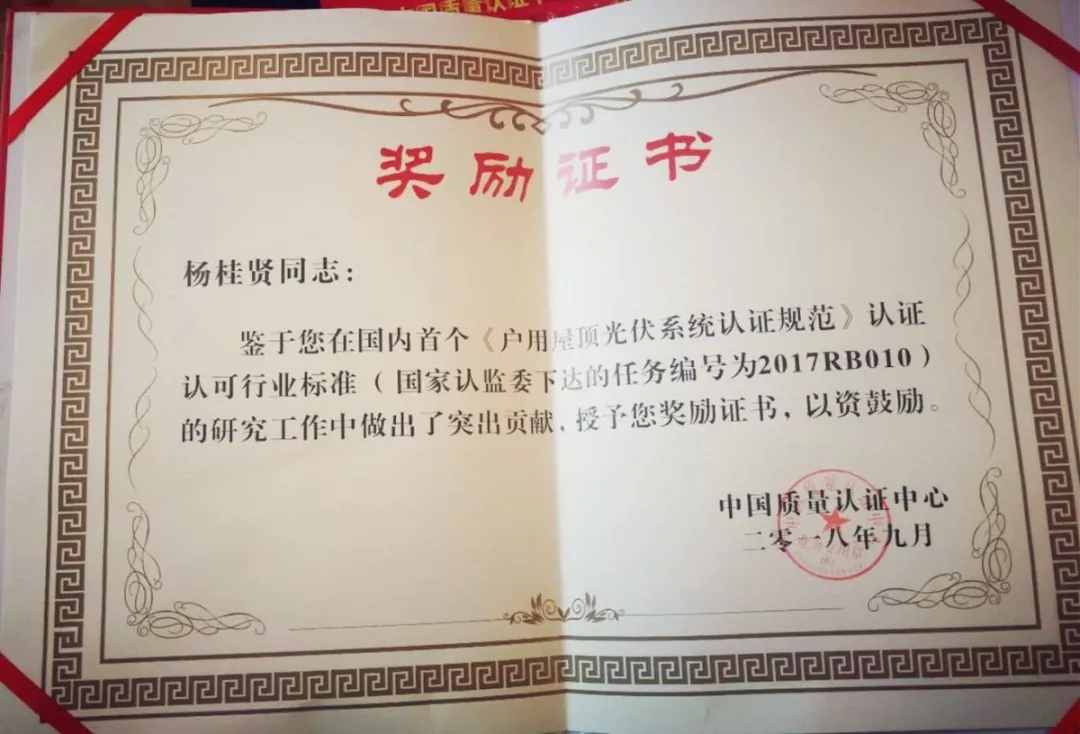 中国质量认证中
奖励证书
杨桂贤同志：
鉴于您在国内首个《户用屋顶光伏系统认证规范》认证
认可行业标准（国家认监委下达的任务编号为2017RB010）
的研究工作中做出了突出贡献，授予您奖励证书，以资鼓励。
中国质量认证中心
二零一八年九月